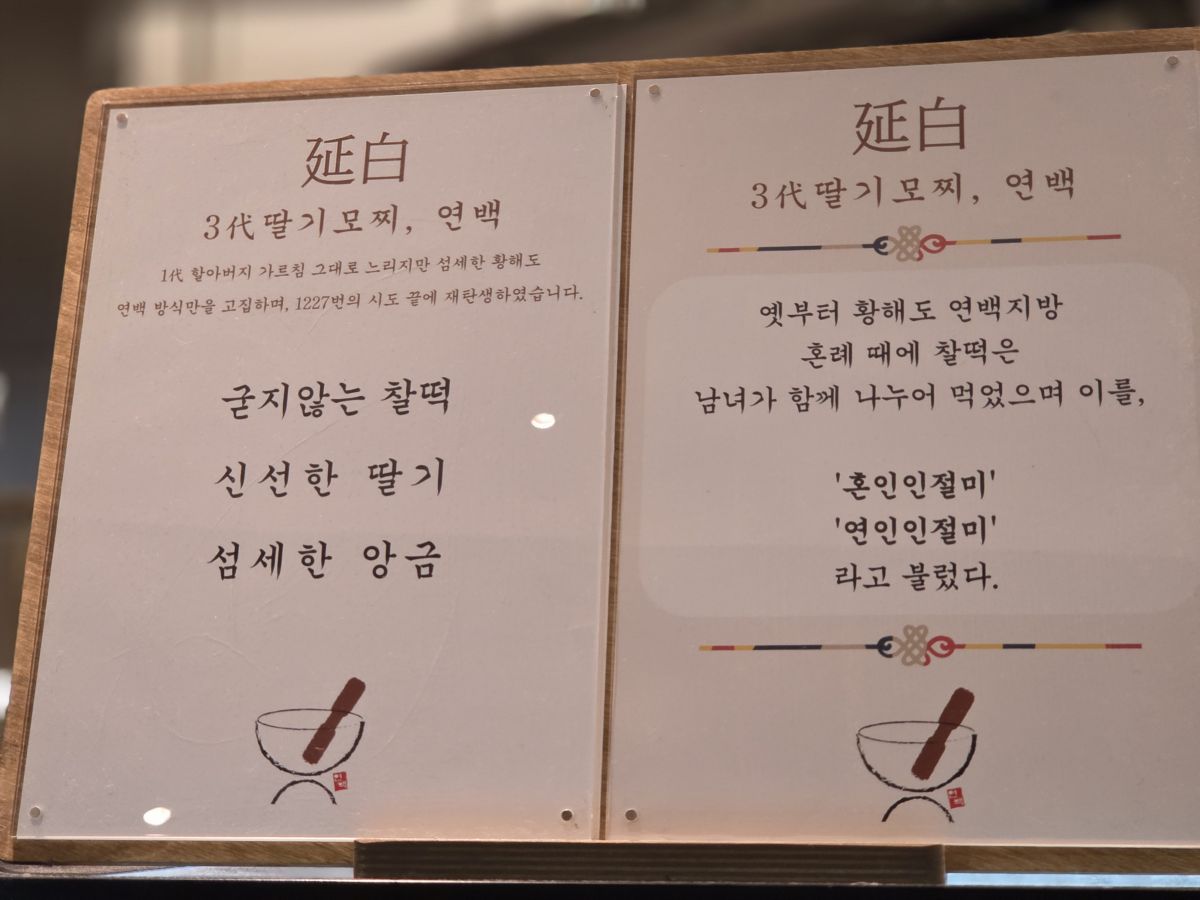 延白
3代딸기모찌, 연백
1代 할아버지 가르침 그대로 느리지만 섬세한 황해도
연백 방식만을 고집하며, 1227번의 시도 끝에 재탄생하였습니다.
굳지않는 찰떡
신선한 딸기
섬세한 앙금
연백
延白
3代딸기모찌, 연백
옛부터 황해도 연백지방
혼례 때에 찰떡은
남녀가 함께 나누어 먹었으며 이를,
'혼인인절미'
'연인인절미'
라고 불렀다.
연백